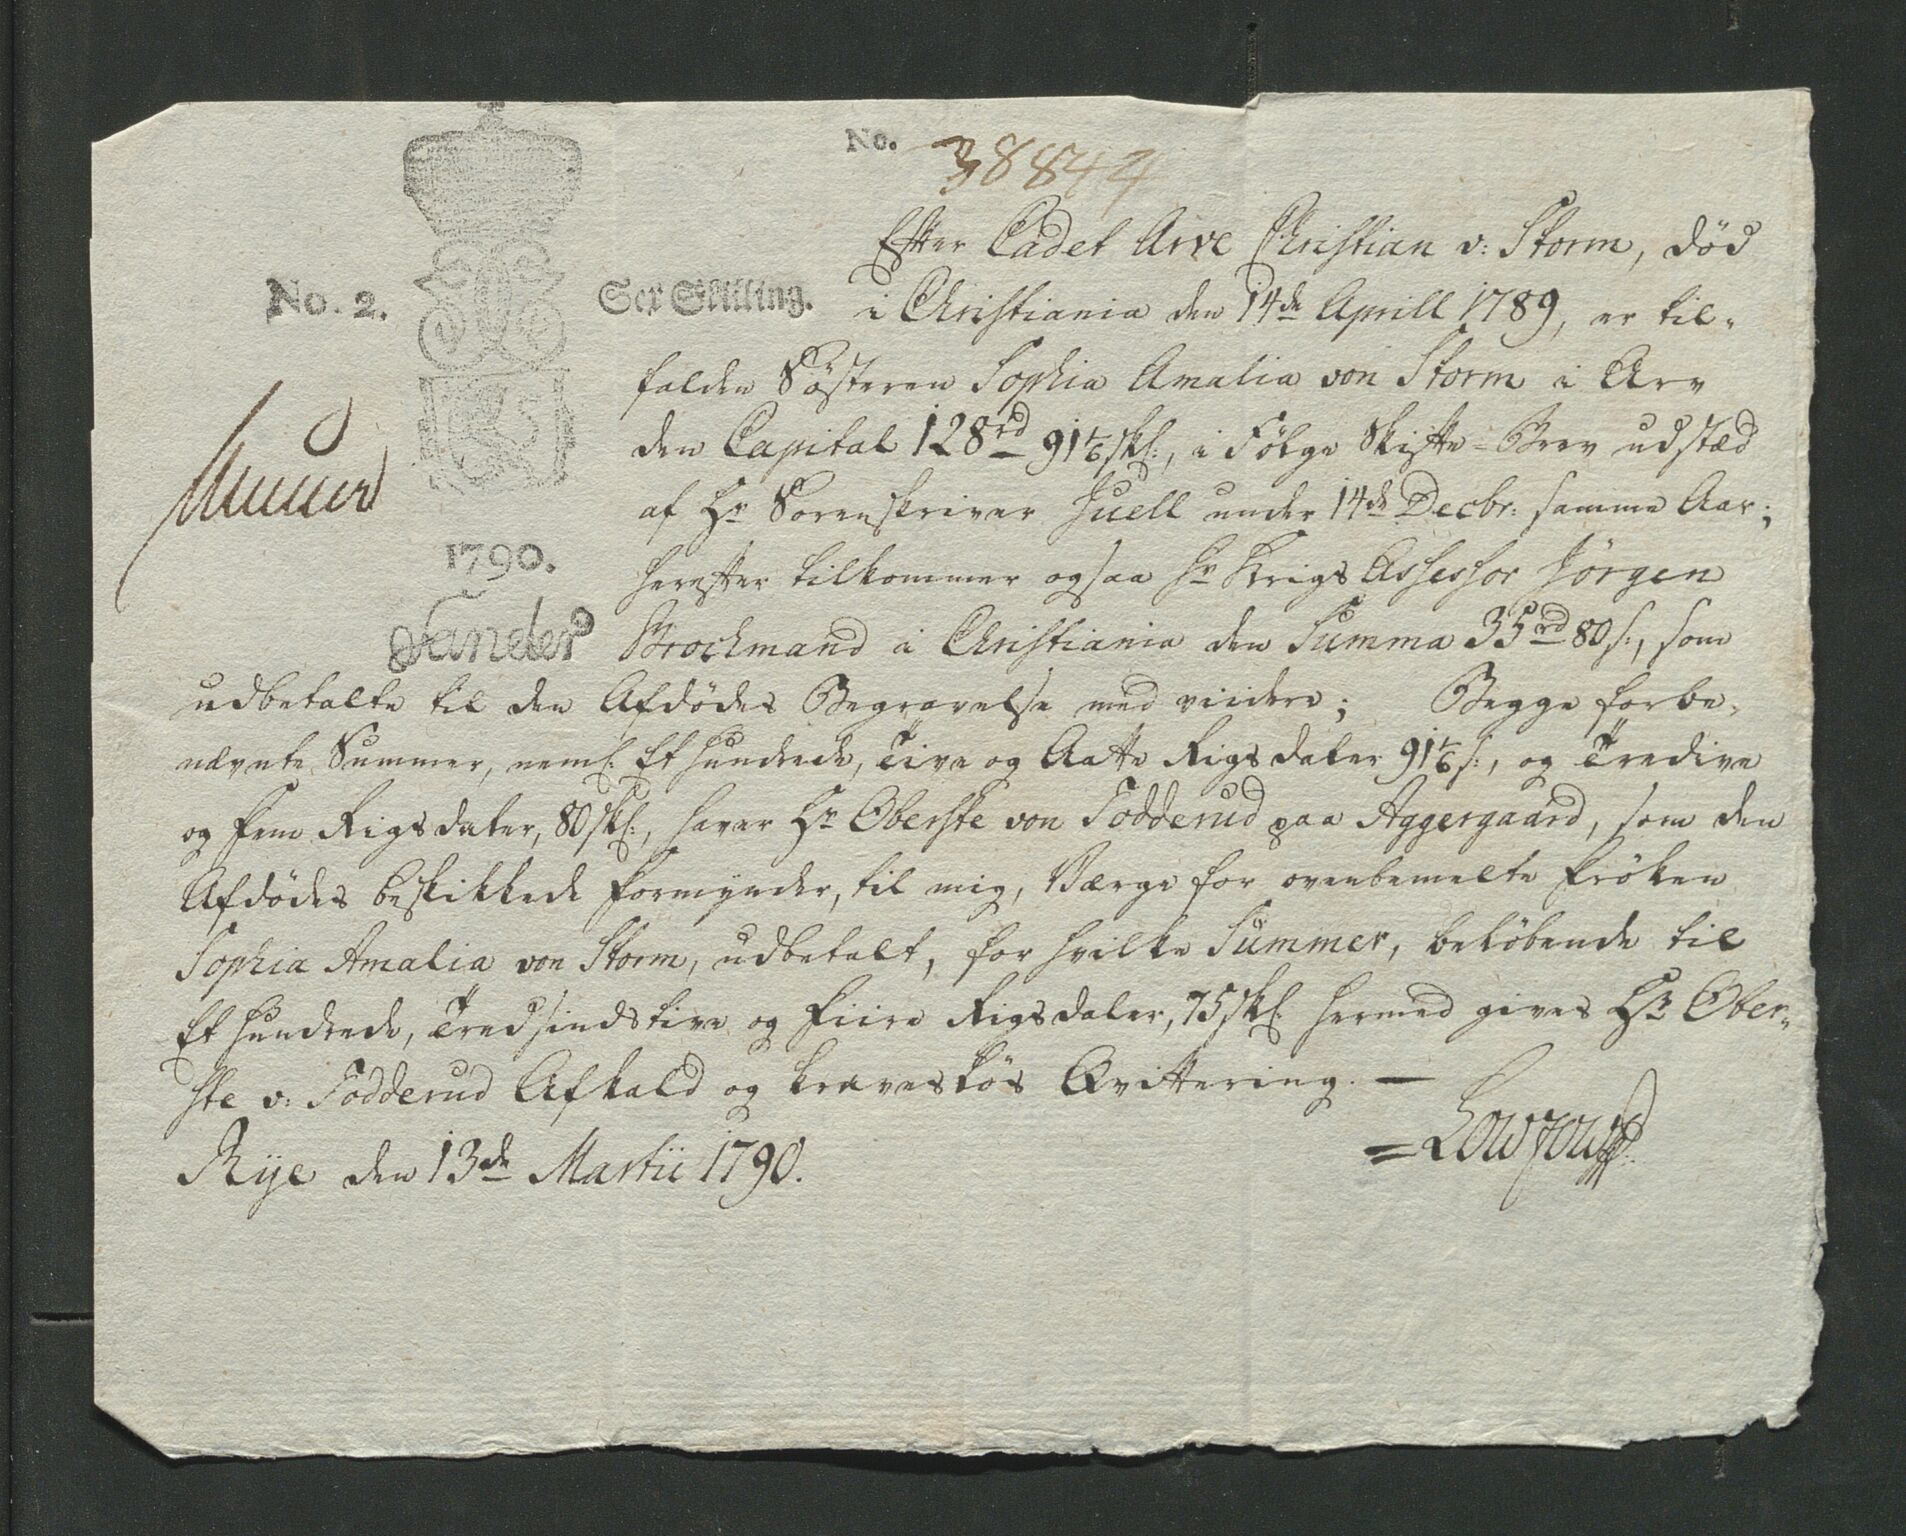 No. 38844
Efter Cadet Arve Christian v: Storm, død
No. 2. Sex Skilling. i Christiania den 14de Aprill 1789, er til-
falden Søsteren Sophia Amalia von Storm i Arv
den Capital 128rd 91 1/6 skl:, i Følge Skifte-Brev udstæd
af Hr Sorenskriver Juell under 14de Decbr: samme Aar;
1790. herefter tilkommer ogsaa Hr Krigs Assessor Jörgen
Brochmand i Christiania den Summa 35rd 80 s:, som
udbetalte til den Afdödes Begravelse med viidere; Begge forbe-
nævnte Summer, neml: Et Hundrede, Tive og Aatte Rigsdaler 91 1/6 s:, og Tredive
og fem Rigsdaler, 80 skl:, haver Hr Oberste von Todderud paa Aggergaard, som den
Afdödes beskikkede Formynder, til mig, Værge for ovenbemelte Fröken
Sophia Amalia von Storm, udbetalt, for hvilke Summer, belöbende til
Et Hundrede, Tredsindstive og Fiire Rigsdaler, 75 skl: hermed gives Hr Ober-
ste v: Todderud Afkald og kraveslös Qvittering. —
Rye den 13de Martii 1790. Lowzow